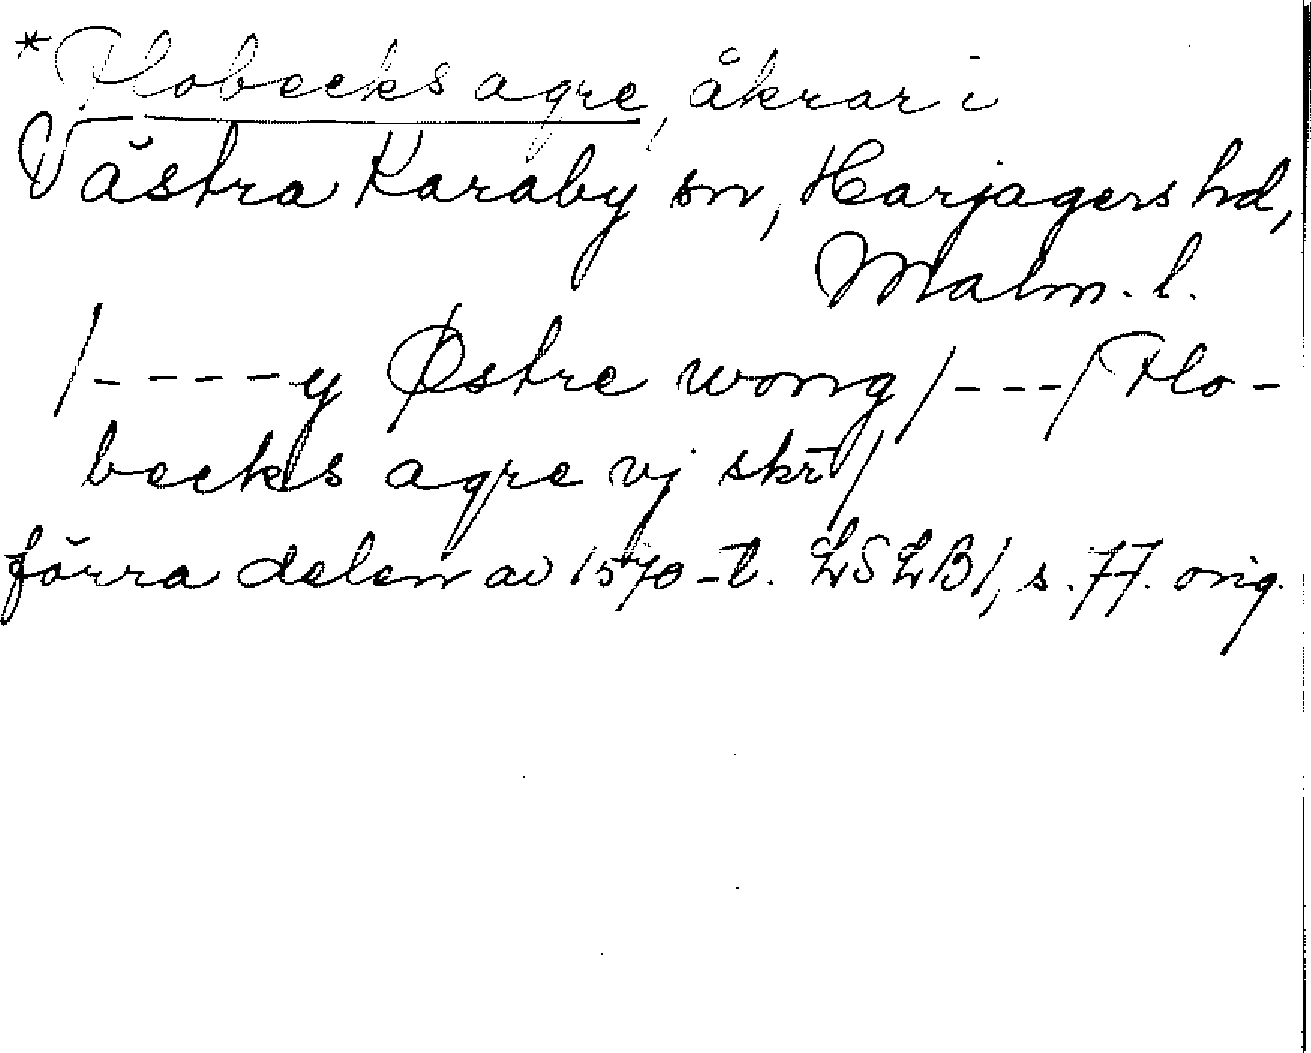 *Flobecks agre, åkrar i
Västra Karaby sn, Harjagers hd,
Malm. l.
/----y Østre wong/---/Flo-
becks agre vj skr̄/
förra delen av 1570-t. LSLB1, s. 77. orig.